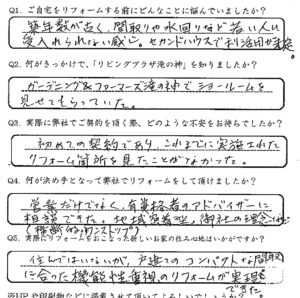 Q1. ご自宅をリフォームする前にどんなことに悩んでいましたか？
築年数が古く、間取りや水回りなど若い人に
受入れられない感じ。セカンドハウスで利活用が前提
Q2. 何がきっかけで、「リビングプラザ滝の神」を知りましたか？
ガーデニング&ファーマーズ滝の神でショールームを
見せてもらっていた。
Q3. 実際に弊社でご契約を頂く際、どのような不安をお持ちでしたか？
初めての契約であり、これまでに実施された
リフォーム箇所を見たことがなかった。
Q4. 何が決め手となって弊社でリフォームをして頂けましたか？
営業だけでなく、有資格者のアドバイザーに
相談できた。地域密着型、御社の理念
Q5. 実際にリフォームをおこなった新しいお家の住み心地はいかがですか？
住んではいないが、戸建のコンパクトな間取
に合った機能性重視のリフォームが実現
できた。
※HPや印刷物などに掲載させて頂いてよろしいでしょうか？